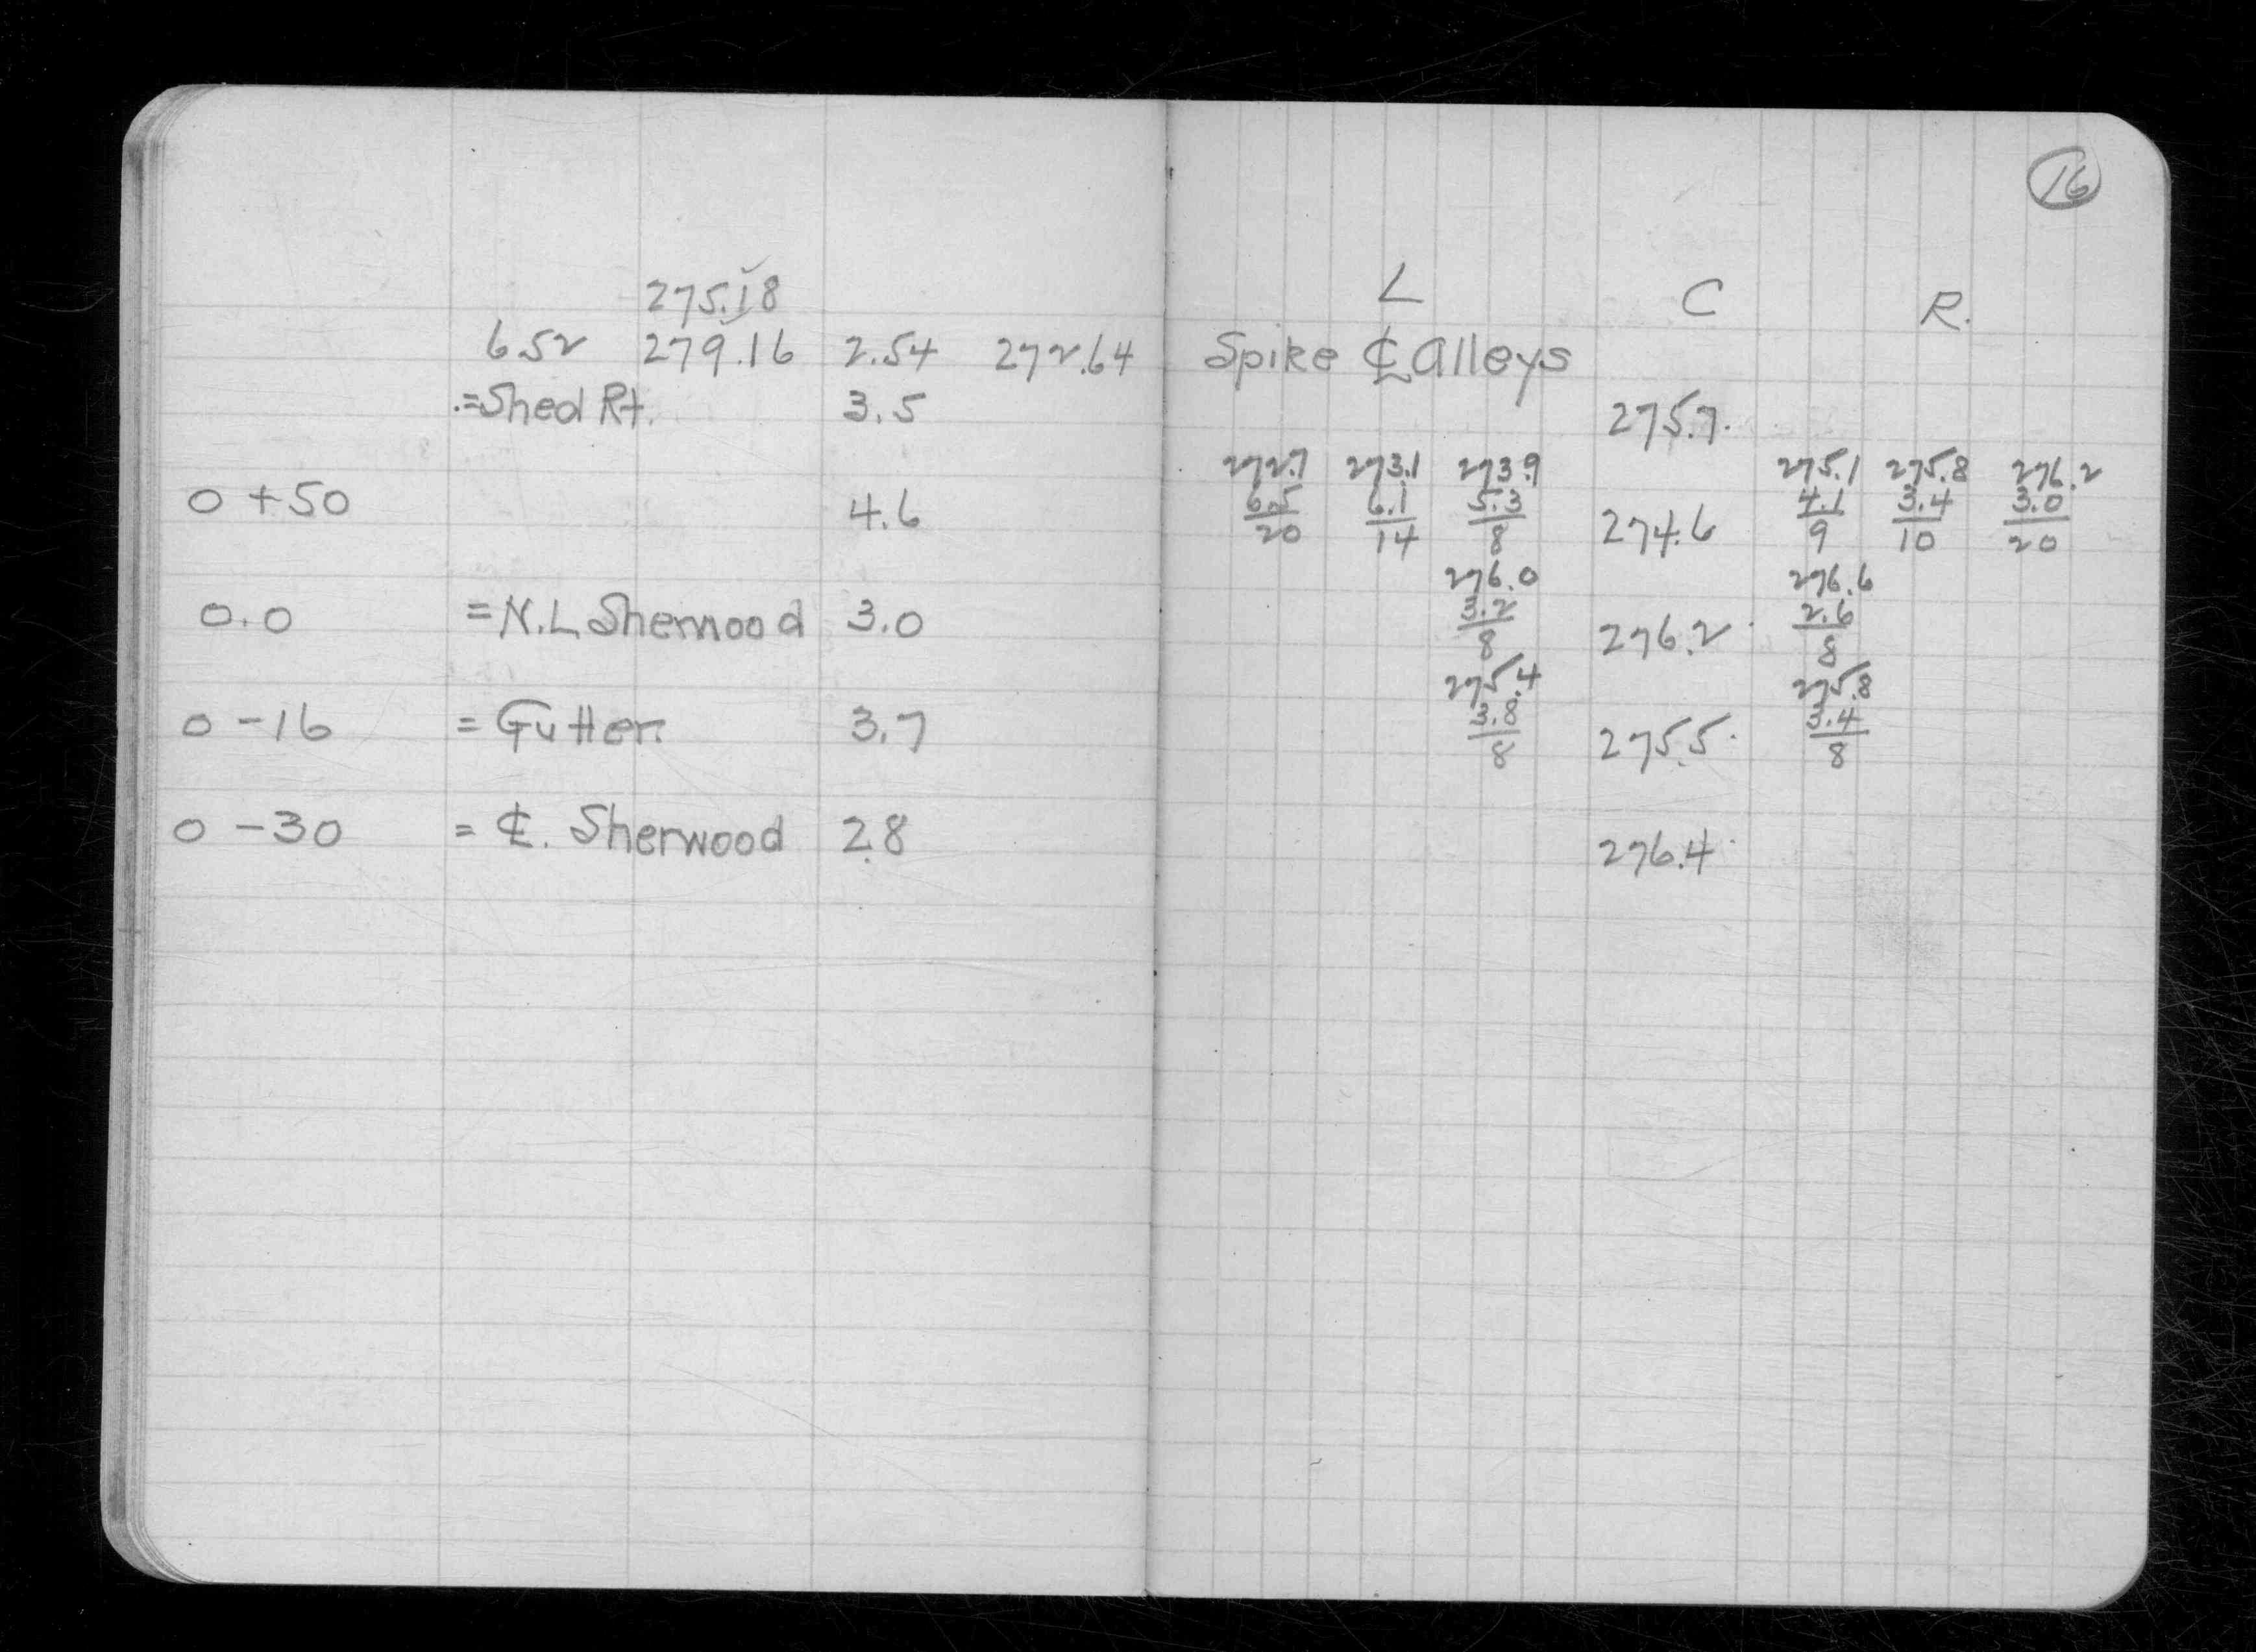 16
275.18
L C R.
6.52 279.16 2.54 272.64 Spike ℄ Alleys
.=Shed Rt. 3.5 275.7.
272.7 273.1 273.9 275.1 275.8 276.2
0+50 4.6 6.5/20 6.1/14 5.3/8 274.6 4.1/9 3.4/10 3.0/20
276.0 276.6
0.0 =N.L Sherwood 3.0 3.2/8 276.2 2.6/8
275.4 275.8
0-16 = Gutter. 3.7 3.8/8 275.5 3.4/8
0-30 = ℄. Sherwood 2.8 276.4